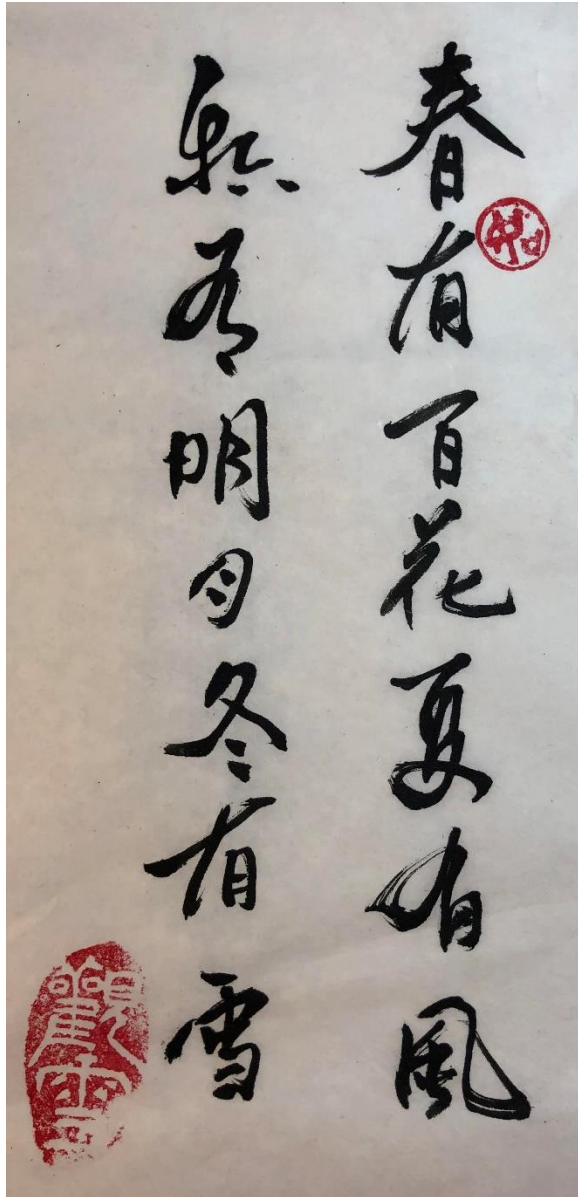 春有百花夏有風
秋有明月冬有雪
觀雲